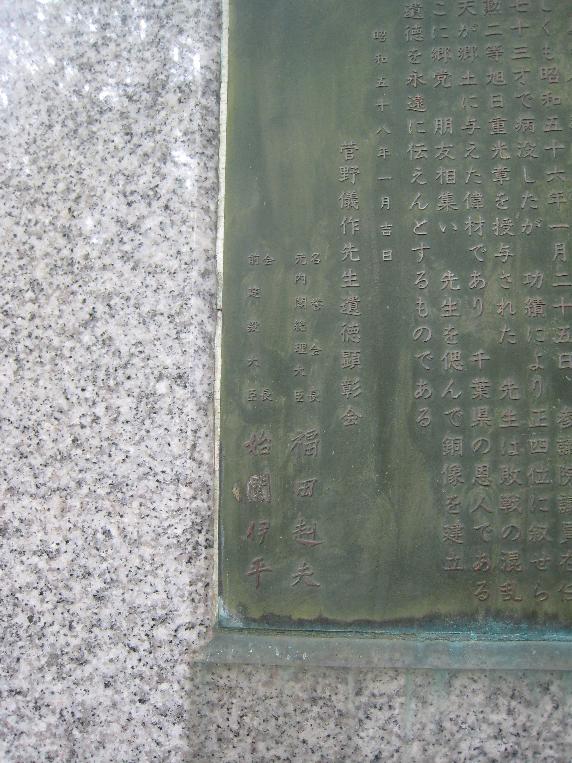 しくも昭和五十六年一月二十五日、参議院議員在任
七十三才で病没したが 功績により正四位に叙せら
勲二等旭日重光章を授与された 先生は敗戦の混乱
天が郷土に与えた偉材であり 千葉県の恩人である
こに郷党 朋友相集い 先生を偲んで銅像を建立
遺徳を永遠に伝えんとするものである
昭和五十八年一月吉日
菅野儀作先生遺徳顕彰会
名誉会長
元内閣総理大臣 福田赳夫
会長
前建設大臣 始関伊平